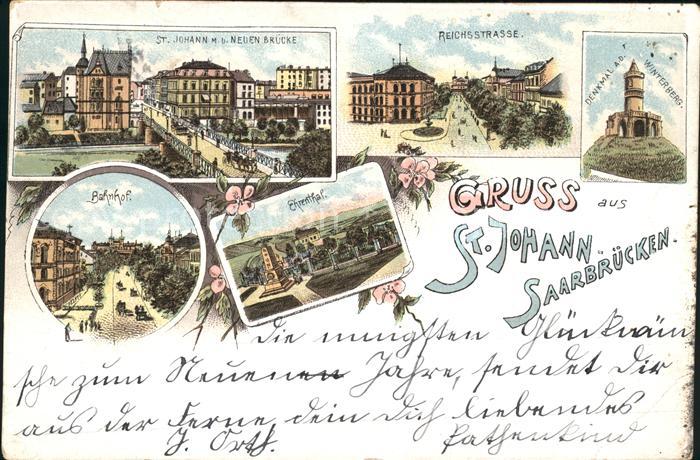 ST. JOHANN M. D. NEUEN BRÜCKE
REICHSSTRASSE.
DENKMAL A. D. WINTERBERG.
Bahnhof.
Ehrenthal.
GRUSS aus
ST. JOHANN-
SAARBRÜCKEN.
Die innigsten Glückwün
sche zum Neuen Jahre, sendet Dir
aus der Ferne, dein Dich liebendes
J. Orth. Pathenkind